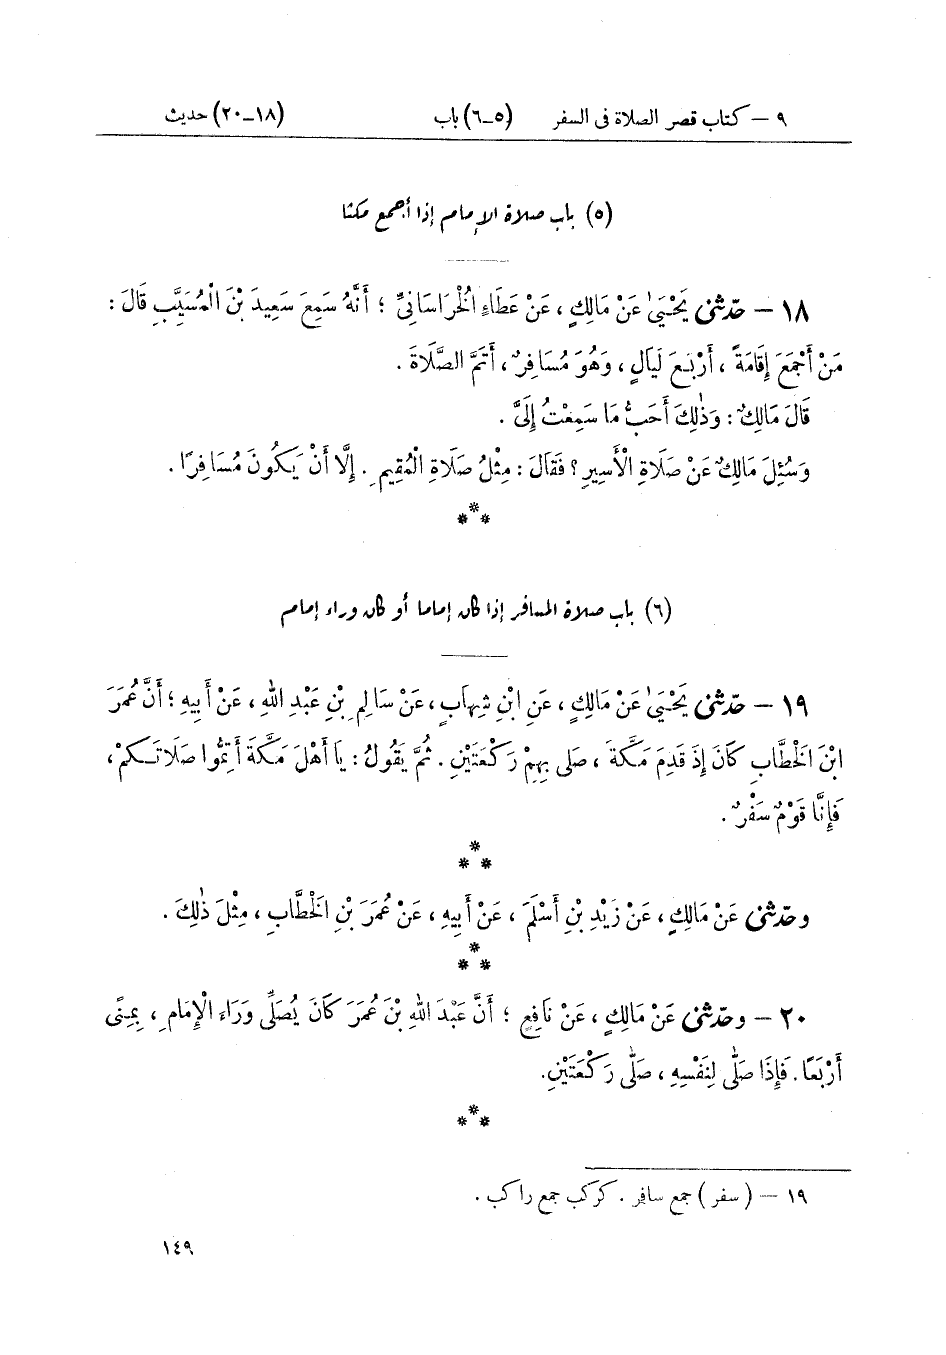 ٩ – كتاب قصر الصلاة فى السفر (٥-٦) باب (١٨-٢٠) حديث
(٥) باب صلاة الإمام إذا أجمع مكثا
١٨ – حدّثنى يَحْيَىٰ عَنْ مَالِكٍ ، عَنْ عَطَاءِ الْخُرَاسَانِىِّ ؛ أَنَّهُ سَمِعَ سَعِيدَ بْنَ الْمُسَيَّبِ قَالَ :
مَنْ أَجْمَعَ إِقَامَةً ، أَرْبَعَ لَيَالٍ ، وَهُوَ مُسَافِرٌ ، أَتَمَّ الصَّلَاةَ .
قَالَ مَالِكٌ : وَذٰلِكَ أَحَبُّ مَا سَمِعْتُ إِلَىَّ .
وَسُئِلَ مَالِكٌ عَنْ صَلَاةِ الْأَسِيرِ ؟ فَقَالَ : مِثْلُ صَلَاةِ الْمُقِيمِ . إِلَّا أَنْ يَكُونَ مُسَافِرًا .
* * *
(٦) باب صلاة المسافر إذا كان إماما أو كان وراء إمام
١٩ – حدّثنى يَحْيَىٰ عَنْ مَالِكٍ ، عَنِ ابْنِ شِهَابٍ ، عَنْ سَالِمِ بْنِ عَبْدِ اللهِ ، عَنْ أَبِيهِ ؛ أَنَّ عُمَرَ
ابْنَ الْخَطَّابِ كَانَ إِذَ قَدِمَ مَكَّةَ ، صَلى بِهِمْ رَكْعَتَيْنِ . ثُمَّ يَقُولُ : يَا أَهْلَ مَكَّةَ أَتِمُّوا صَلَاتَكُمْ ،
فَإِنَّا قَوْمٌ سَفْرٌ .
* * *
وحدّثنى عَنْ مَالِكٍ ، عَنْ زَيْدِ بْنِ أَسْلَمَ ، عَنْ أَبِيهِ ، عَنْ عُمَرَ بْنِ الْخَطَّابِ ، مِثْلَ ذٰلِكَ .
* * *
٢٠ – وحدّثنى عَنْ مَالِكٍ ، عَنْ نَافِعٍ ؛ أَنَّ عَبْدَ اللهِ بْنَ عُمَرَ كَانَ يُصَلِّى وَرَاءَ الْإِمَامِ ، بِمِنًى
أَرْبَعًا . فَإِذَا صَلَّى لِنَفْسِهِ ، صَلَّى رَكْعَتَيْنِ .
* * *
١٩ – ( سفر ) جمع سافر . كركب جمع راكب .
١٤٩